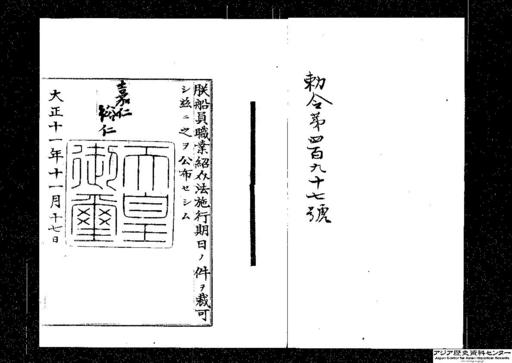 勅令第四百九十七號
朕船員職業紹介法施行期日ノ件ヲ裁可
シ茲ニ之ヲ公布セシム
嘉仁
裕仁
天皇
御璽
大正十一年十一月十七日
アジア歴史資料センター
Japan Center for Asian Historical Records